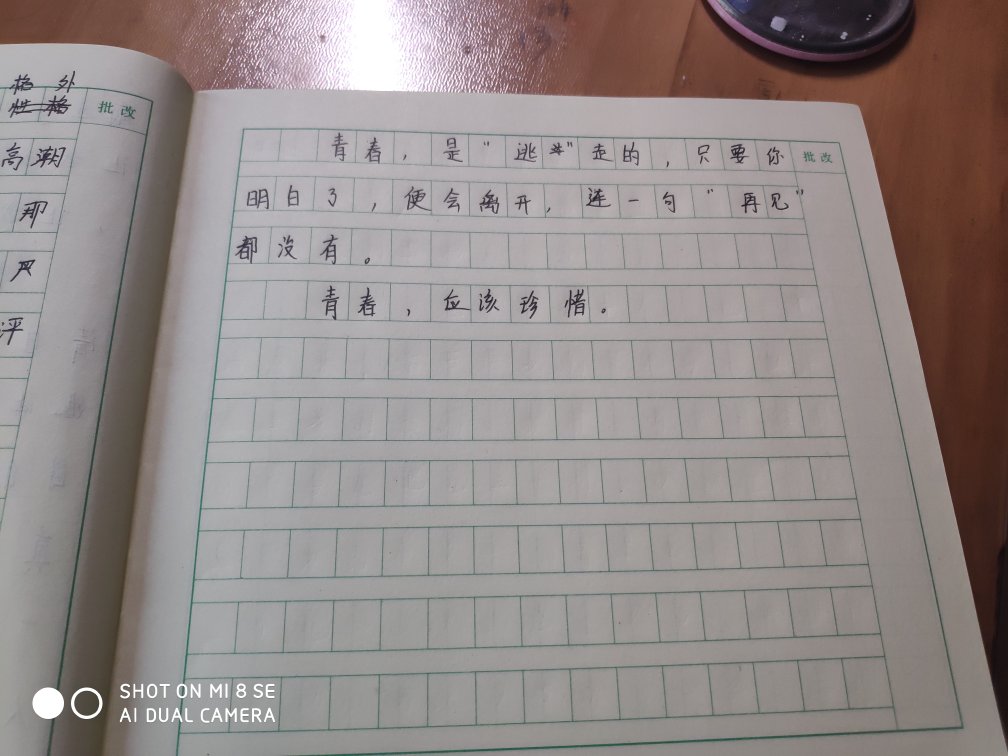 格外
性格
批改
高潮
那
评
青春，是“逃”走的，只要你
批改
明白了，便会离开，连一句“再见”
都没有。
青春，应该珍惜。
SHOT ON MI 8 SE
AI DUAL CAMERA